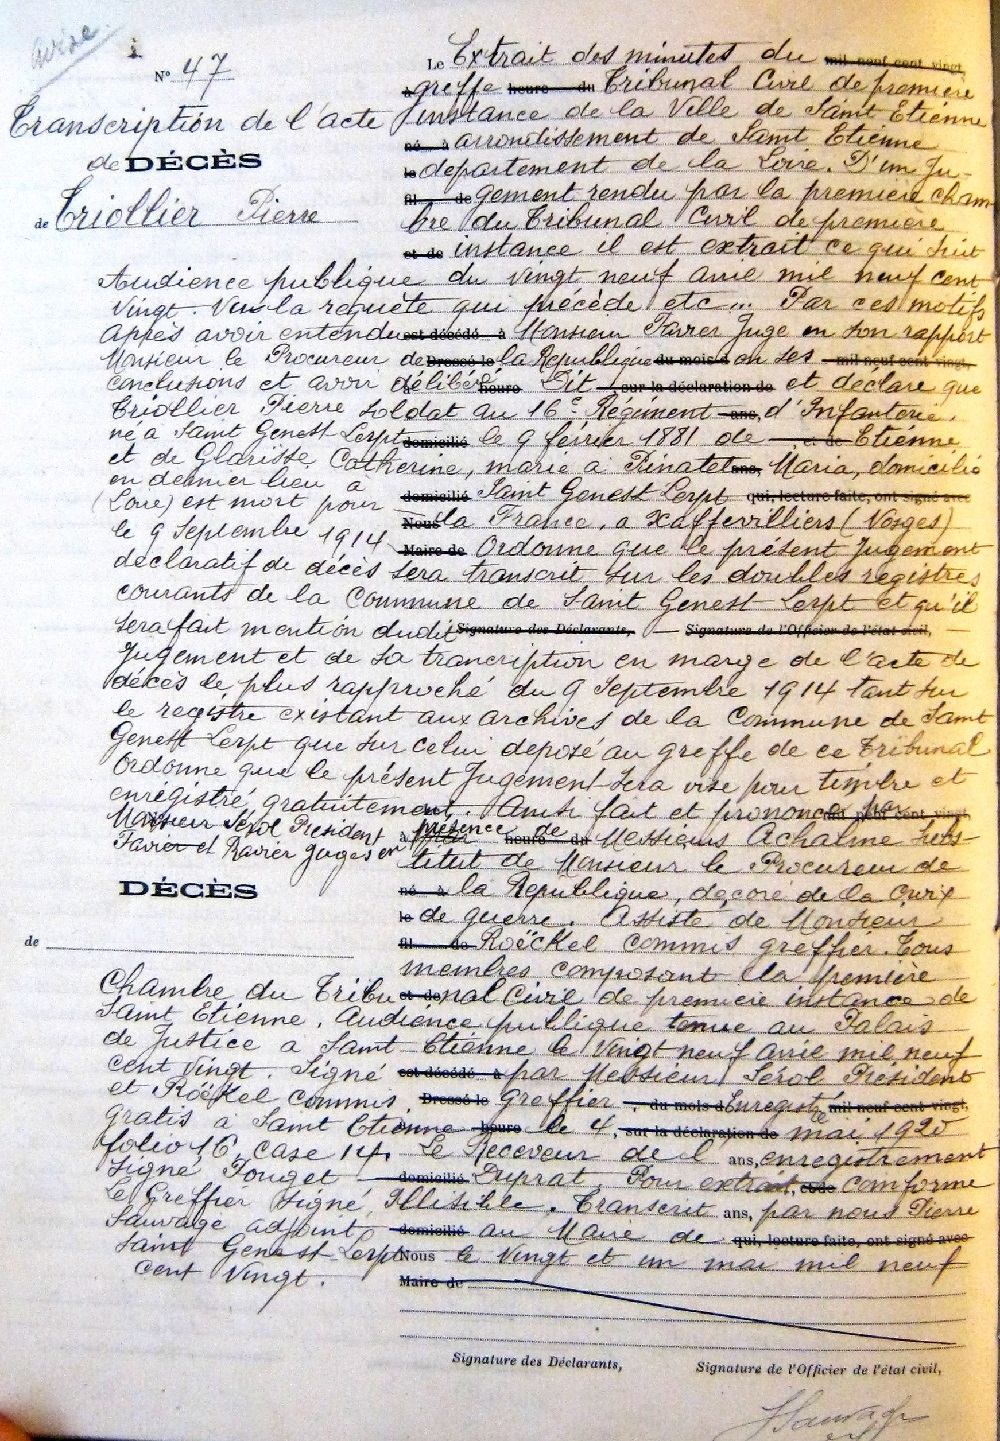 avise
N° 47
Transcription de l'acte
de DÉCÈS
de Triollier Pierre
Le Extrait des minutes du mil neuf cent vingt,
à greffe heure du Tribunal Civil de première
instance de la Ville de Saint Etienne
né à arrondissement de Saint Etienne
le département de la Loire. D'un Ju-
fil de gement rendu par la première cham-
bre du Tribunal Civil de première
et de instance il est extrait ce qui suit
Audience publique du vingt neuf avril mil neuf cent
vingt. Vu la requête qui précède etc... Par ces motifs
Après avoir entendu est décédé à Monsieur Favier Juge en son rapport
Monsieur le Procureur de Dressé le la République du mois d en ses mil neuf cent vingt,
conclusions et avoir délibéré heure Dit sur la déclaration de et déclare que
Triollier Pierre soldat au 16e Régiment ans, d'Infanterie,
né à Saint Genest Lerpt domicilié le 9 février 1881 de et de Etienne
et de Glarisse Catherine, marié à Pinatel ans, Maria, domicilié
en dernier lieu à domicilié Saint Genest Lerpt qui, lecture faite, ont signé avec
(Loire) est mort pour Nous la France, à Xaffévilliers (Vosges)
le 9 Septembre 1914 Maire de Ordonne que le présent Jugement
déclaratif de décès sera transcrit sur les doubles registres
courants de la Commune de Saint Genest Lerpt et qu'il
sera fait mention dudit Signature des Déclarants, Signature de l'Officier de l'état civil,
Jugement et de sa trancription en marge de l'acte de
décès le plus rapproché du 9 Septembre 1914 tant sur
le registre existant aux archives de la Commune de Saint
Genest Lerpt que sur celui déposé au greffe de ce Tribunal
Ordonne que le présent Jugement sera visé pour timbre et
enregistré gratuitement. Ainsi fait et prononcé par mil neuf cent vingt,
Monsieur Sérol Président
Favier et Ravier Juges en à présence de heure du Messieurs Achalme Subs-
titut de Monsieur le Procureur de
DÉCÈS
né à la République, décoré de la Croix
le de guerre. Assisté de Monsieur
de
fil de Roëckel commis greffier. Tous
membres composant la première
Chambre du Tribu et de nal Civil de première instance de
Saint Etienne. Audience publique tenue au Palais
de Justice à Saint Etienne le Vingt neuf avril mil neuf
cent vingt. Signé est décédé à par Messieurs Sérol Président
et Roëckel commis Dressé le Greffier. du mois d Enregistré mil neuf cent vingt,
gratis à Saint Etienne heure le 4, sur la déclaration de mai 1920
folio 16, case 14. Le Receveur de l' ans, enregistrement
Signé Fouget domicilié Duprat. Pour extrait, et de conforme
Le Greffier Signé, Illisible. Transcrit ans, par nous Pierre
Sauvage adjoint domicilié au Maire de qui, lecture faite, ont signé avec
Saint Genest Lerpt Nous le Vingt et un mai mil neuf
cent Vingt. Maire de
Signature des Déclarants, Signature de l'Officier de l'état civil,
Sauvage